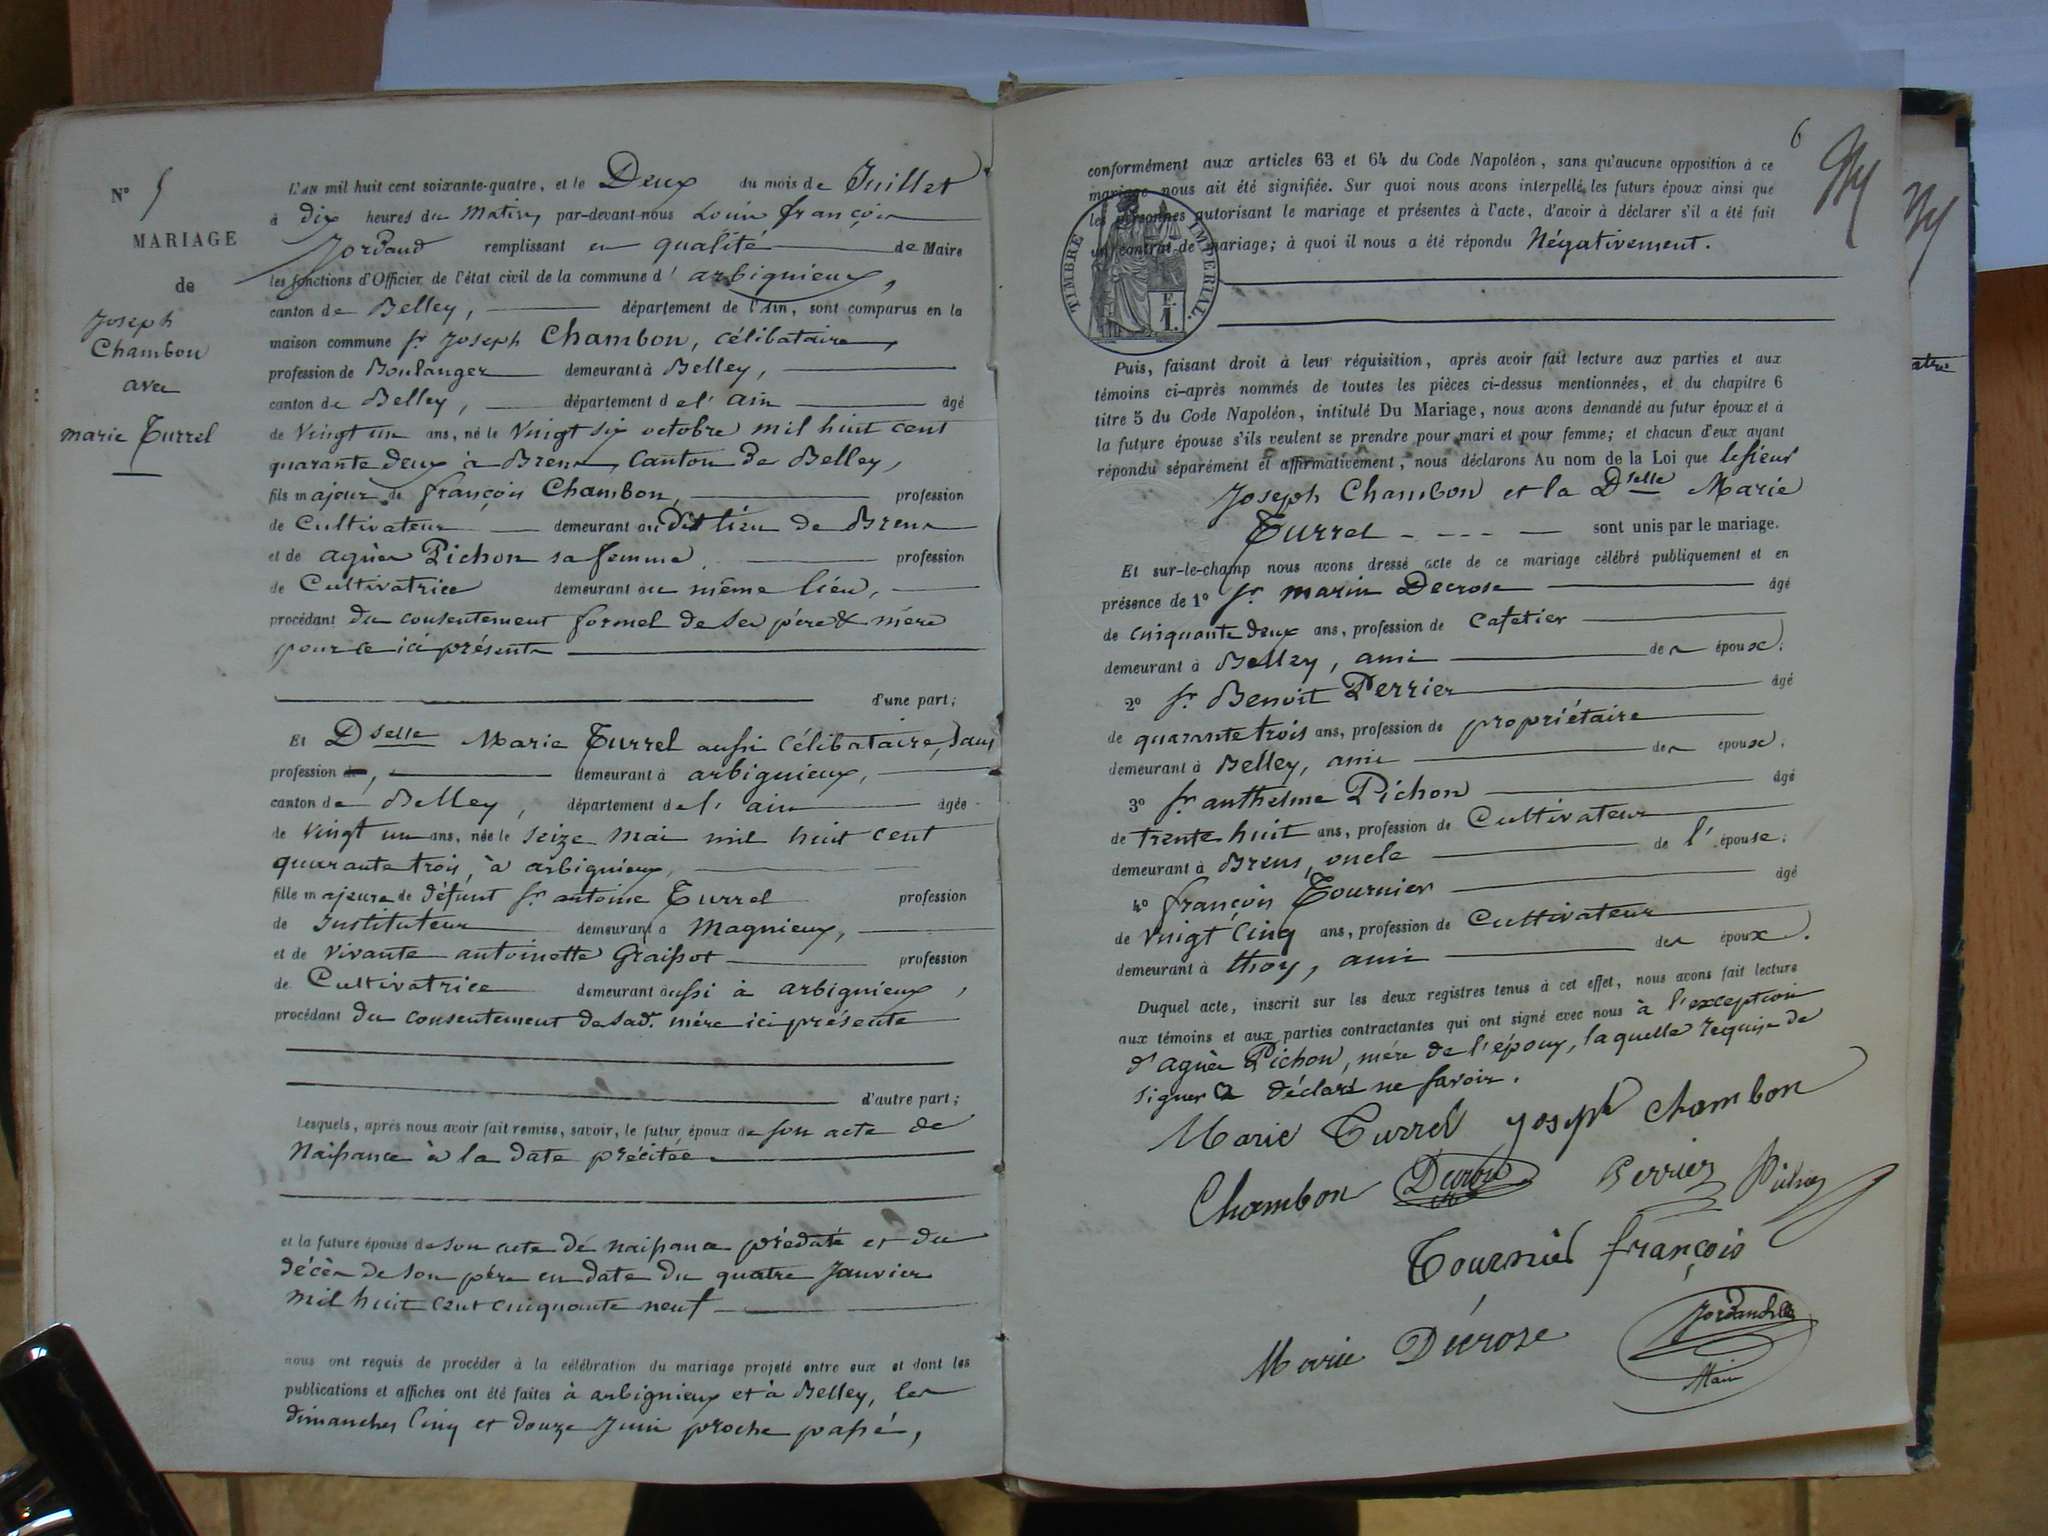 N° 5
MARIAGE
de
Joseph
Chambon
avec
marie Turrel
L'AN mil huit cent soixante-quatre, et le Deux du mois de Juillet
à dix heures du Matin, par-devant-nous Louis françois
Jordand remplissant en qualité de Maire
les fonctions d'Officier de l'état civil de la commune d'arbignieux,
canton de Belley, département de l'Ain, sont comparus en la
maison commune Sr Joseph Chambon, célibataire,
profession de Boulanger demeurant à Belley,
canton de Belley, département de l'ain âgé
de Vingt un ans, né le Vingt six octobre mil huit cent
quarante deux à Brens, Canton de Belley,
fils majeur de françois Chambon, profession
de Cultivateur demeurant au Dit lieu de Brens
et de agnès Pichon sa femme profession
de Cultivatrice demeurant au même lieu,
procédant du consentement formel de ses père & mère
pour ce ici présents
d'une part;
Et Dselle Marie Turrel aussi célibataire, sans
profession de, demeurant à arbignieux,
canton de Belley, département de l'ain âgée
de vingt un ans, née le seize mai mil huit cent
quarante trois, à arbignieux,
fille majeure de défunt Sr antoine Turrel profession
de Instituteur demeurant à Magnieux,
et de vivante antoinette Graissot profession
de Cultivatrice demeurant aussi à arbignieux,
procédant du consentement de sad. mère ici présente
d'autre part;
Lesquels, après nous avoir fait remise, savoir, le futur époux de son acte de
Naissance à la date précitée
et la future épouse de son acte de naissance prédaté et du
décès de son père en date du quatre Janvier
mil huit cent cinquante neuf
nous ont requis de procéder à la célébration du mariage projeté entre eux et dont les
publications et affiches ont été faites à arbignieux et à Belley, les
dimanches Cinq et douze Juin proche passé,
6
conformément aux articles 63 et 64 du Code Napoléon, sans qu'aucune opposition à ce
mariage nous ait été signifiée. Sur quoi nous avons interpellé les futurs époux ainsi que
les personnes autorisant le mariage et présentes à l'acte, d'avoir à déclarer s'il a été fait
un contrat de mariage; à quoi il nous a été répondu Négativement.
TIMBRE IMPERIAL.
1F.
Puis, faisant droit à leur réquisition, après avoir fait lecture aux parties et aux
témoins ci-après nommés de toutes les pièces ci-dessus mentionnées, et du chapitre 6
titre 5 du Code Napoléon, intitulé Du Mariage, nous avons demandé au futur époux et à
la future épouse s'ils veulent se prendre pour mari et pour femme; et chacun d'eux ayant
répondu séparément et affirmativement, nous déclarons Au nom de la Loi que le sieur
Joseph Chambon et la Dselle Marie
Turrel sont unis par le mariage.
Et sur-le-champ nous avons dressé acte de ce mariage célébré publiquement et en
présence de 1° Sr marin Decrose âgé
de cinquante deux ans, profession de Cafetier
demeurant à Belley, ami des époux;
2° Sr Benoit Perrier âgé
de quarante trois ans, profession de propriétaire
demeurant à Belley, ami des époux;
3° Sr anthelme Pichon âgé
de trente huit ans, profession de Cultivateur
demeurant à Brens, oncle de l'épouse;
4° françois Tournier âgé
de Vingt Cinq ans, profession de Cultivateur
demeurant à thoy, ami des époux.
Duquel acte, inscrit sur les deux registres tenus à cet effet, nous avons fait lecture
aux témoins et aux parties contractantes qui ont signé avec nous à l'exception
d'agnès Pichon, mère de l'époux, laquelle requise de
signer a déclaré ne savoir.
Marie Turrel Joseph Chambon
Chambon Decrose Perrier Pichon
Tournier françois
Marie Décrose
Maire